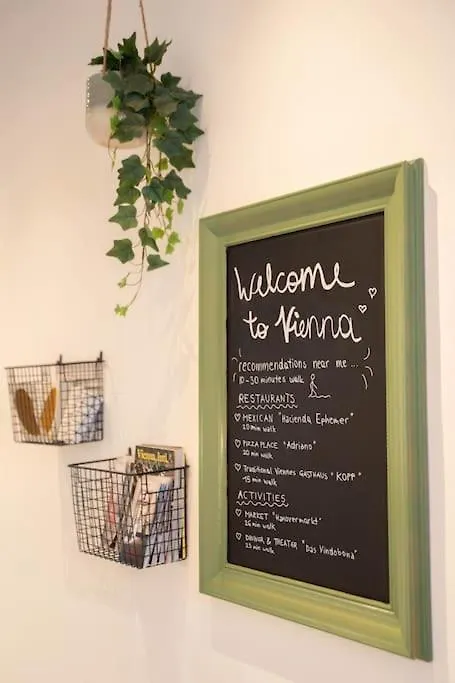 Welcome
to Vienna
recommendations near me ...
10-30 minutes walk
RESTAURANTS
♡ MEXICAN "Hacienda Ephemer"
20 min walk
♡ PIZZA PLACE "Adriano"
20 min walk
♡ Traditional Viennes GASTHAUS "KOPP"
15 min walk
ACTIVITIES
♡ MARKET "Hanovermarkt"
26 min walk
♡ DINNER & THEATER "Das Vindobona"
23 min walk